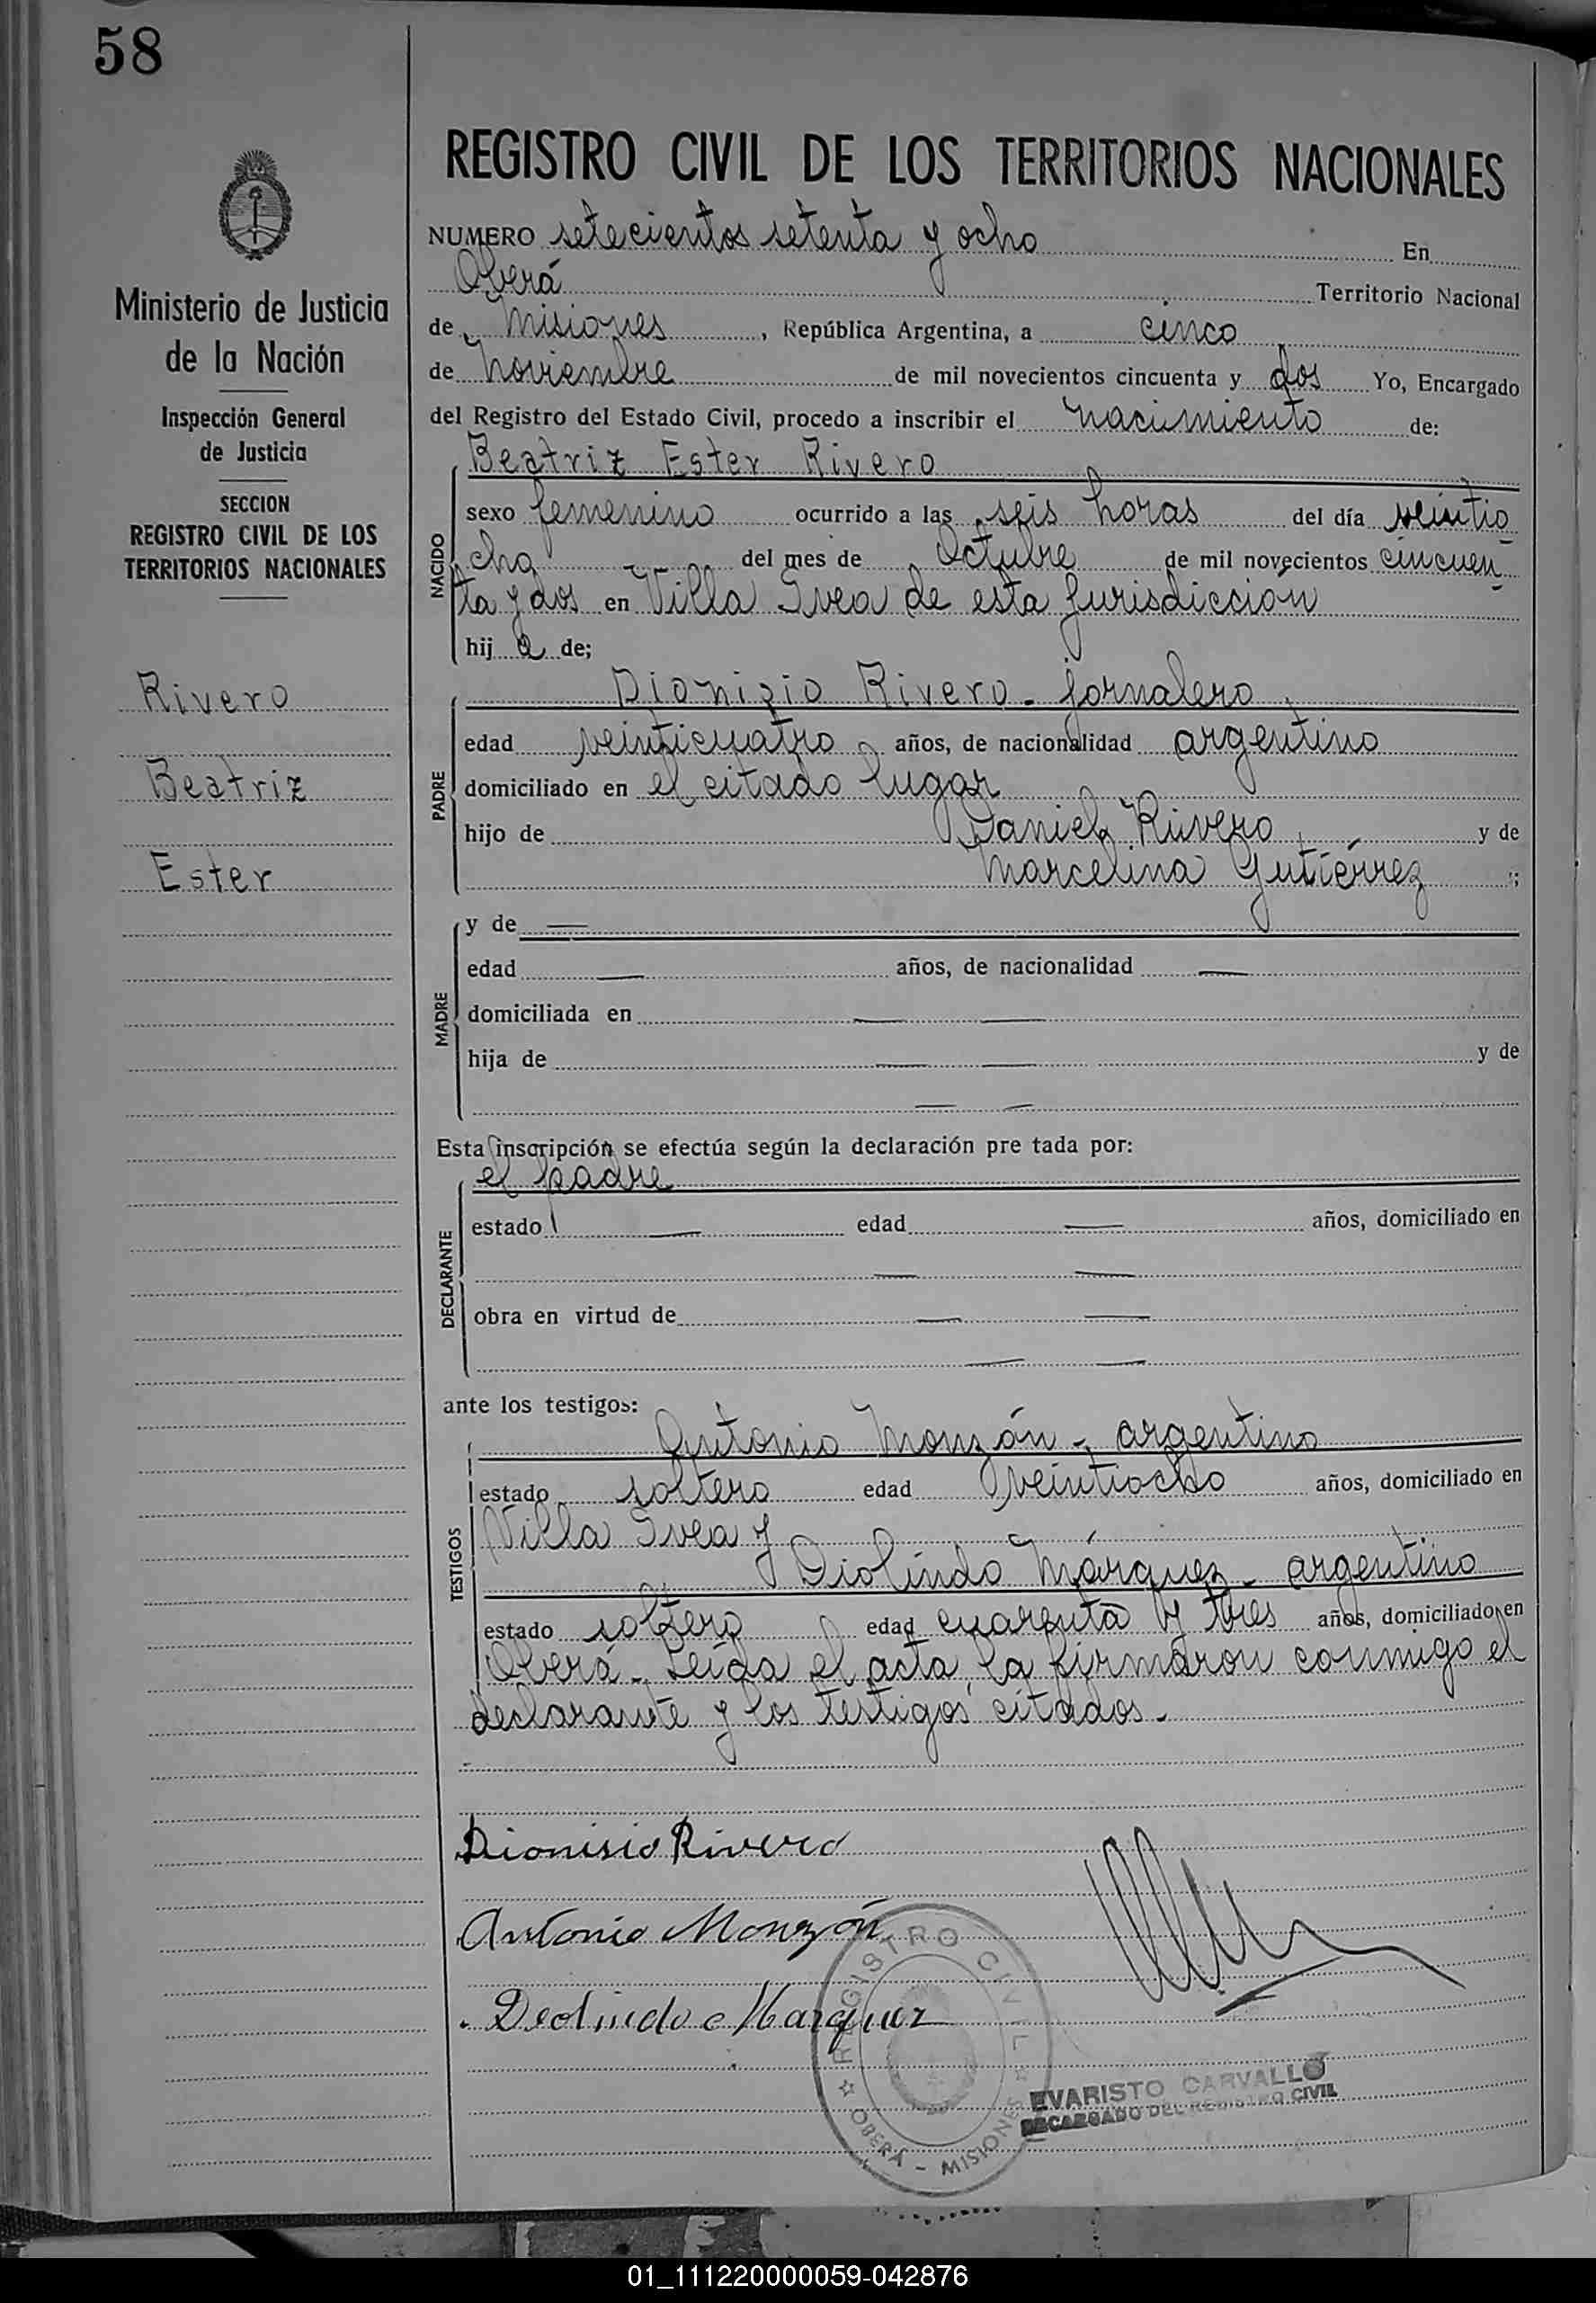 58
REGISTRO CIVIL DE LOS TERRITORIOS NACIONALES
Ministerio de Justicia
de la Nación
Inspección General
de Justicia
SECCION
REGISTRO CIVIL DE LOS
TERRITORIOS NACIONALES
Rivero
Beatriz
Ester
NUMERO setecientos setenta y ocho En
Oberá Territorio Nacional
de Misiones, República Argentina, a cinco
de Noviembre de mil novecientos cincuenta y dos Yo, Encargado
del Registro del Estado Civil, procedo a inscribir el nacimiento de:
Beatriz Ester Rivero
NACIDO
sexo femenino ocurrido a las seis horas del día veintio
cho del mes de Octubre de mil novecientos cincuen
ta y dos en Villa Svea de esta Jurisdicción
hij a de;
PADRE
Dionizio Rivero - jornalero
edad veinticuatro años, de nacionalidad argentino
domiciliado en el citado lugar
hijo de Daniel Rivero y de
Marcelina Gutiérrez ;
MADRE
y de —
edad — años, de nacionalidad —
domiciliada en — —
hija de — — y de
— —
Esta inscripción se efectúa según la declaración pre tada por:
el padre
DECLARANTE
estado — edad — años, domiciliado en
— —
obra en virtud de — —
— —
ante los testigos:
TESTIGOS
Antonio Monzón - argentino
estado soltero edad veintiocho años, domiciliado en
Villa Svea y
Diolindo Márquez - argentino
estado soltero edad cuarenta y tres años, domiciliado en
Oberá - Leída el acta, la firmaron conmigo el
declarante y los testigos citados.
Dionisio Rivero
Antonio Monzón
Deolindo Marquez
REGISTRO CIVIL
OBERÁ - MISIONES
EVARISTO CARVALLO
ENCARGADO DEL REGISTRO CIVIL
01_111220000059-042876